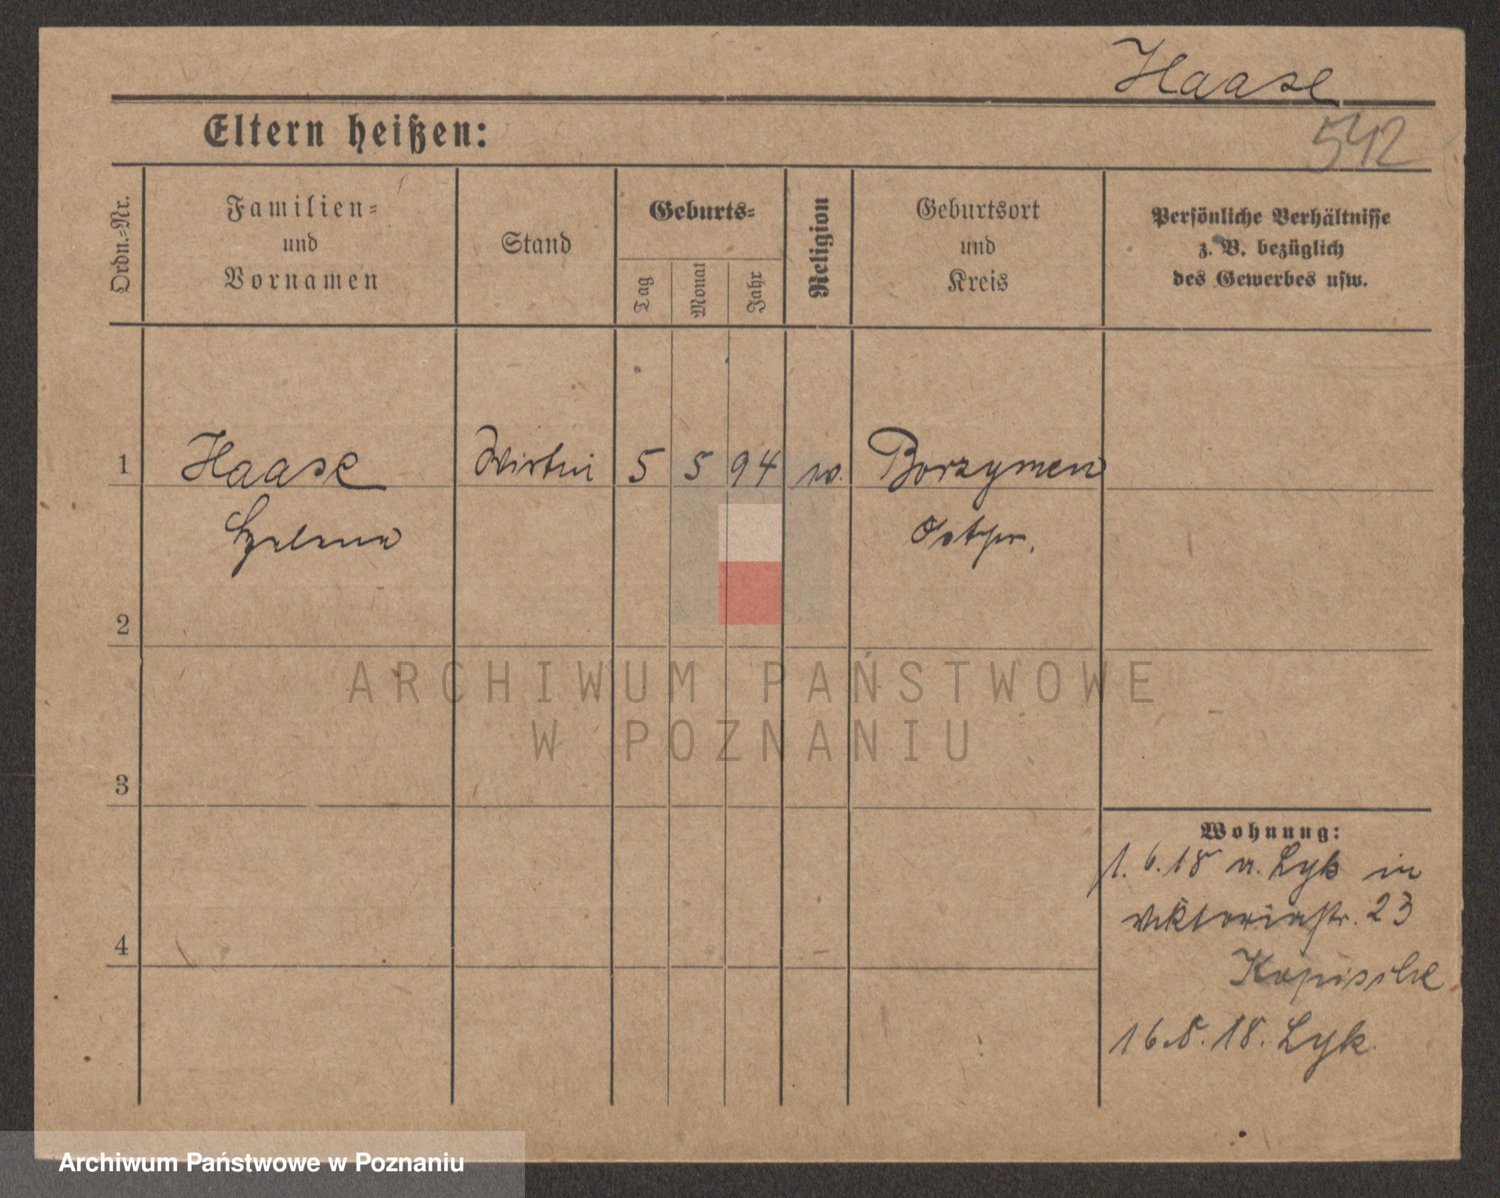 Haase
542
Eltern heißen:
Ordn.-Nr.
Familien-
und
Vornamen
Stand
Geburts-
Tag
Monat
Jahr
Religion
Geburtsort
und
Kreis
Persönliche Verhältnisse
z. B. bezüglich
des Gewerbes usw.
1 Haase 5 5 94 Borzymen
Helene Ostpr.
2
ARCHIWUM PAŃSTWOWE
W POZNANIU
3
Wohnung:
1. 6. 18 a. Lyk in
Viktoriastr. 23
4
16.8.18. Lyk.
Archiwum Państwowe w Poznaniu